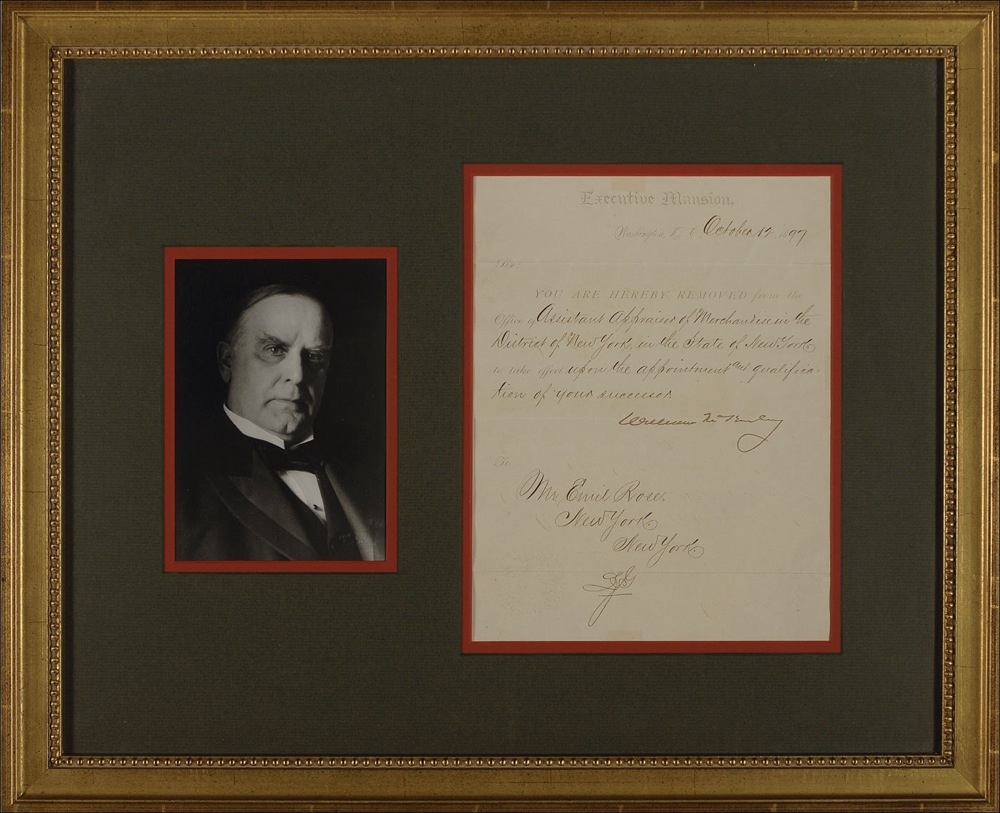 Executive Mansion,
Washington, D. C. October 12, 1897
Sir:
YOU ARE HEREBY REMOVED from the
Office of Assistant Appraiser of Merchandise in the
District of New York, in the State of New York,
to take effect upon the appointment and qualifica-
tion of your successor.
William McKinley
To
Mr. Emil Rose,
New York,
New York.